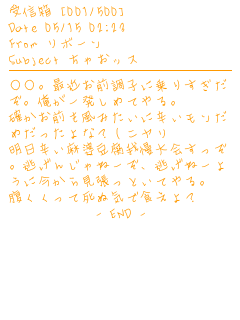 受信箱 [001/500]
Date 05/15 01:27
From リボーン
Subject ちゃおッス
〇〇。最近お前調子に乗りすぎだ
ぞ。俺が一発しめてやる。
確かお前も風みたいに辛いモンだ
めだったよな？(ニヤリ
明日辛い麻婆豆腐我慢大会すっぞ
。逃げんじゃねーぞ、逃げねーよ
うに今から見張っといてやる。
腹くくって死ぬ気で食えよ？
- END -